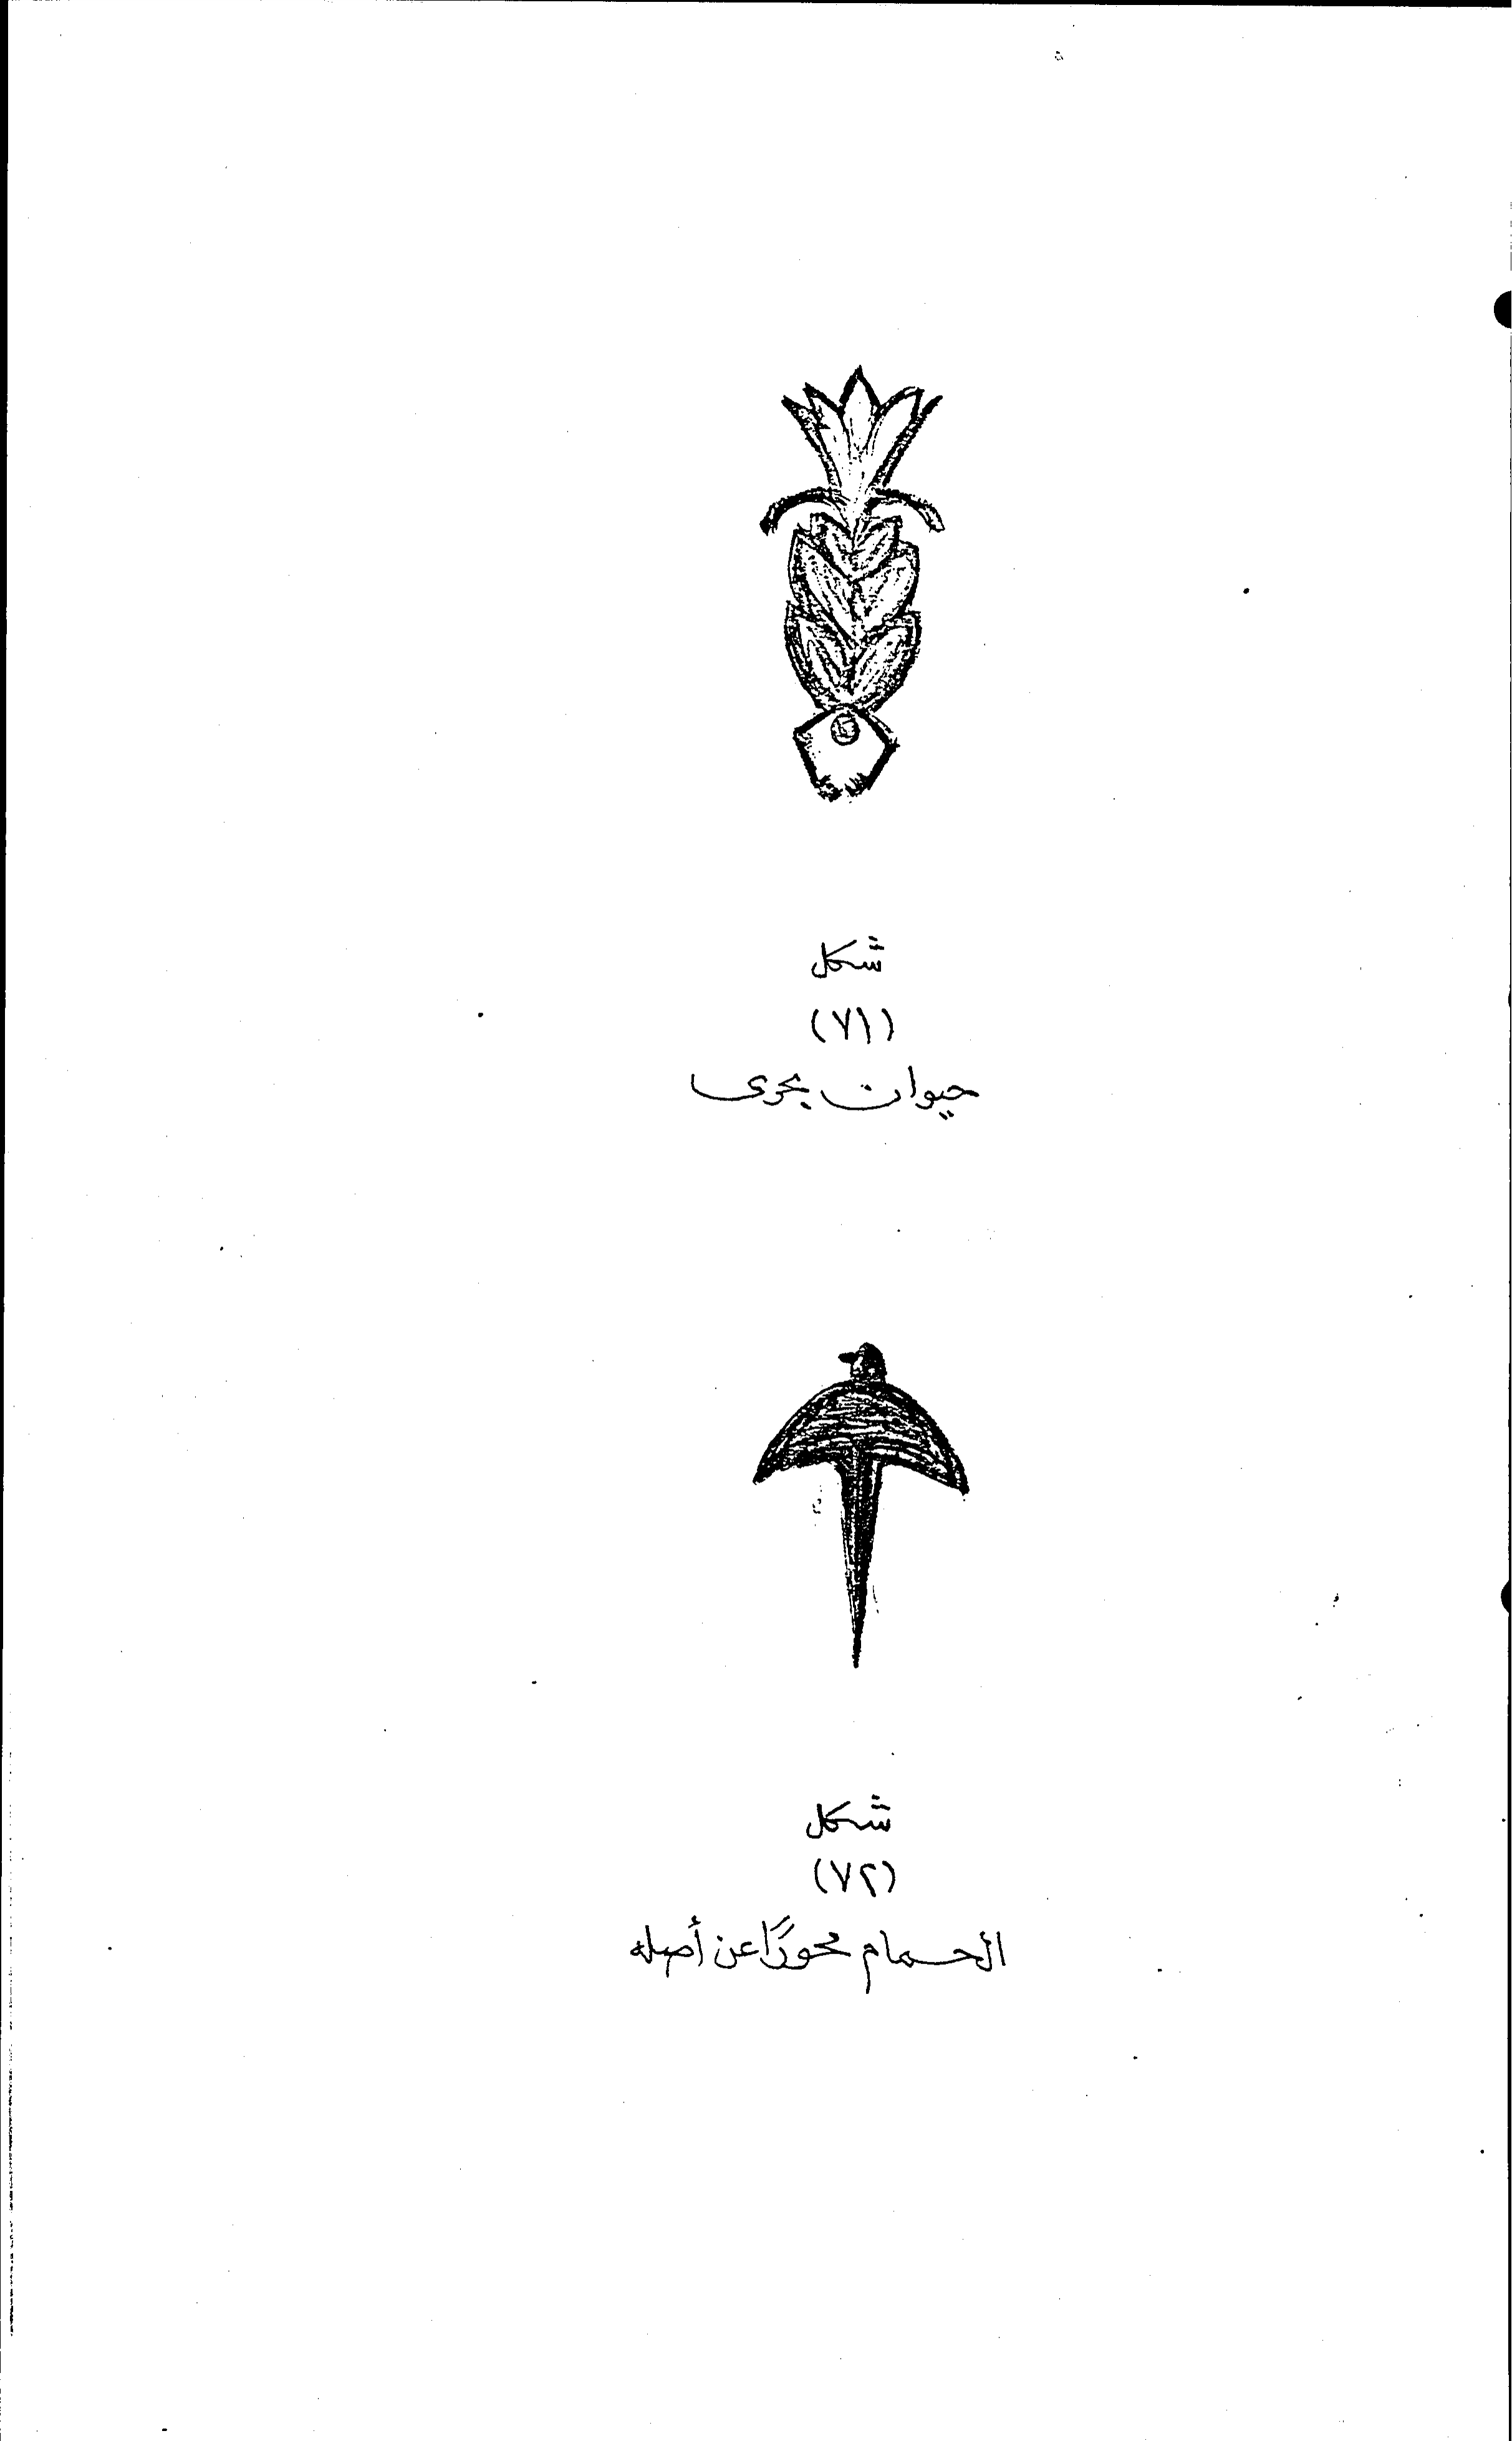 شكل
(٧١)
حيوان بحرى
شكل
(٧٢)
الحمام محورًا عن أصله